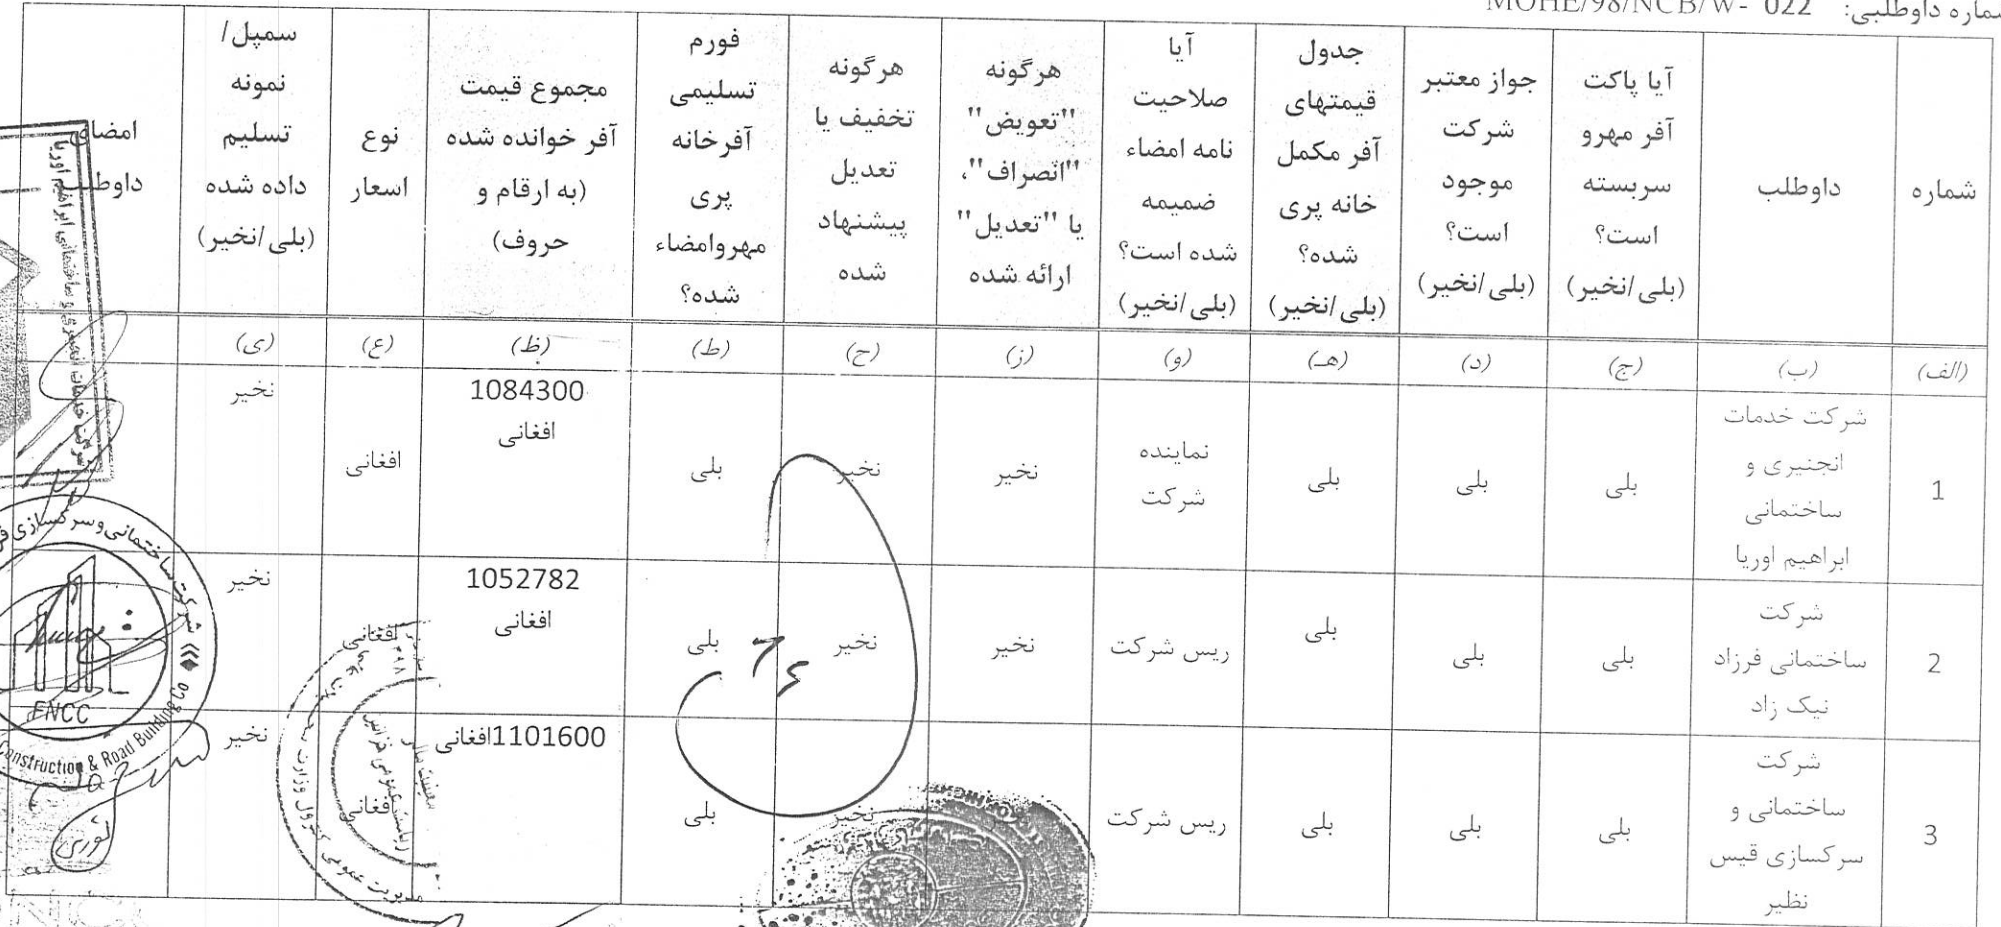 شماره داوطلبی: MOHE/98/NCB/W- 022
شماره
داوطلب
آیا پاکت
آفر مهرو
سربسته
است؟
(بلی/نخیر)
جواز معتبر
شرکت
موجود
است؟
(بلی/نخیر)
جدول
قیمتهای
آفر مکمل
خانه پری
شده؟
(بلی/نخیر)
آیا
صلاحیت
نامه امضاء
ضمیمه
شده است؟
(بلی/نخیر)
هرگونه
"تعویض"
"انصراف"،
یا "تعدیل"
ارائه شده
هرگونه
تخفیف یا
تعدیل
پیشنهاد
شده
فورم
تسلیمی
آفرخانه
پری
مهروامضاء
شده؟
مجموع قیمت
آفر خوانده شده
(به ارقام و
حروف)
نوع
اسعار
سمپل/
نمونه
تسلیم
داده شده
(بلی/نخیر)
امضای
داوطلب
(الف)
(ب)
(ج)
(د)
(هـ)
(و)
(ز)
(ح)
(ط)
(ظ)
(ع)
(ی)
1
شرکت خدمات
انجنیری و
ساختمانی
ابراهیم اوریا
بلی
بلی
بلی
نماینده
شرکت
نخیر
نخیر
بلی
1084300
افغانی
افغانی
نخیر
2
شرکت
ساختمانی فرزاد
نیک زاد
بلی
بلی
بلی
ریس شرکت
نخیر
نخیر
بلی
1052782
افغانی
افغانی
نخیر
3
شرکت
ساختمانی و
سرکسازی قیس
نظیر
بلی
بلی
بلی
ریس شرکت
نخیر
بلی
1101600افغانی
افغانی
نخیر
شرکت خدمات انجنیری و ساختمانی ابراهیم اوریا
شرکت ساختمانی و سرکسازی
Construction & Road Building Co